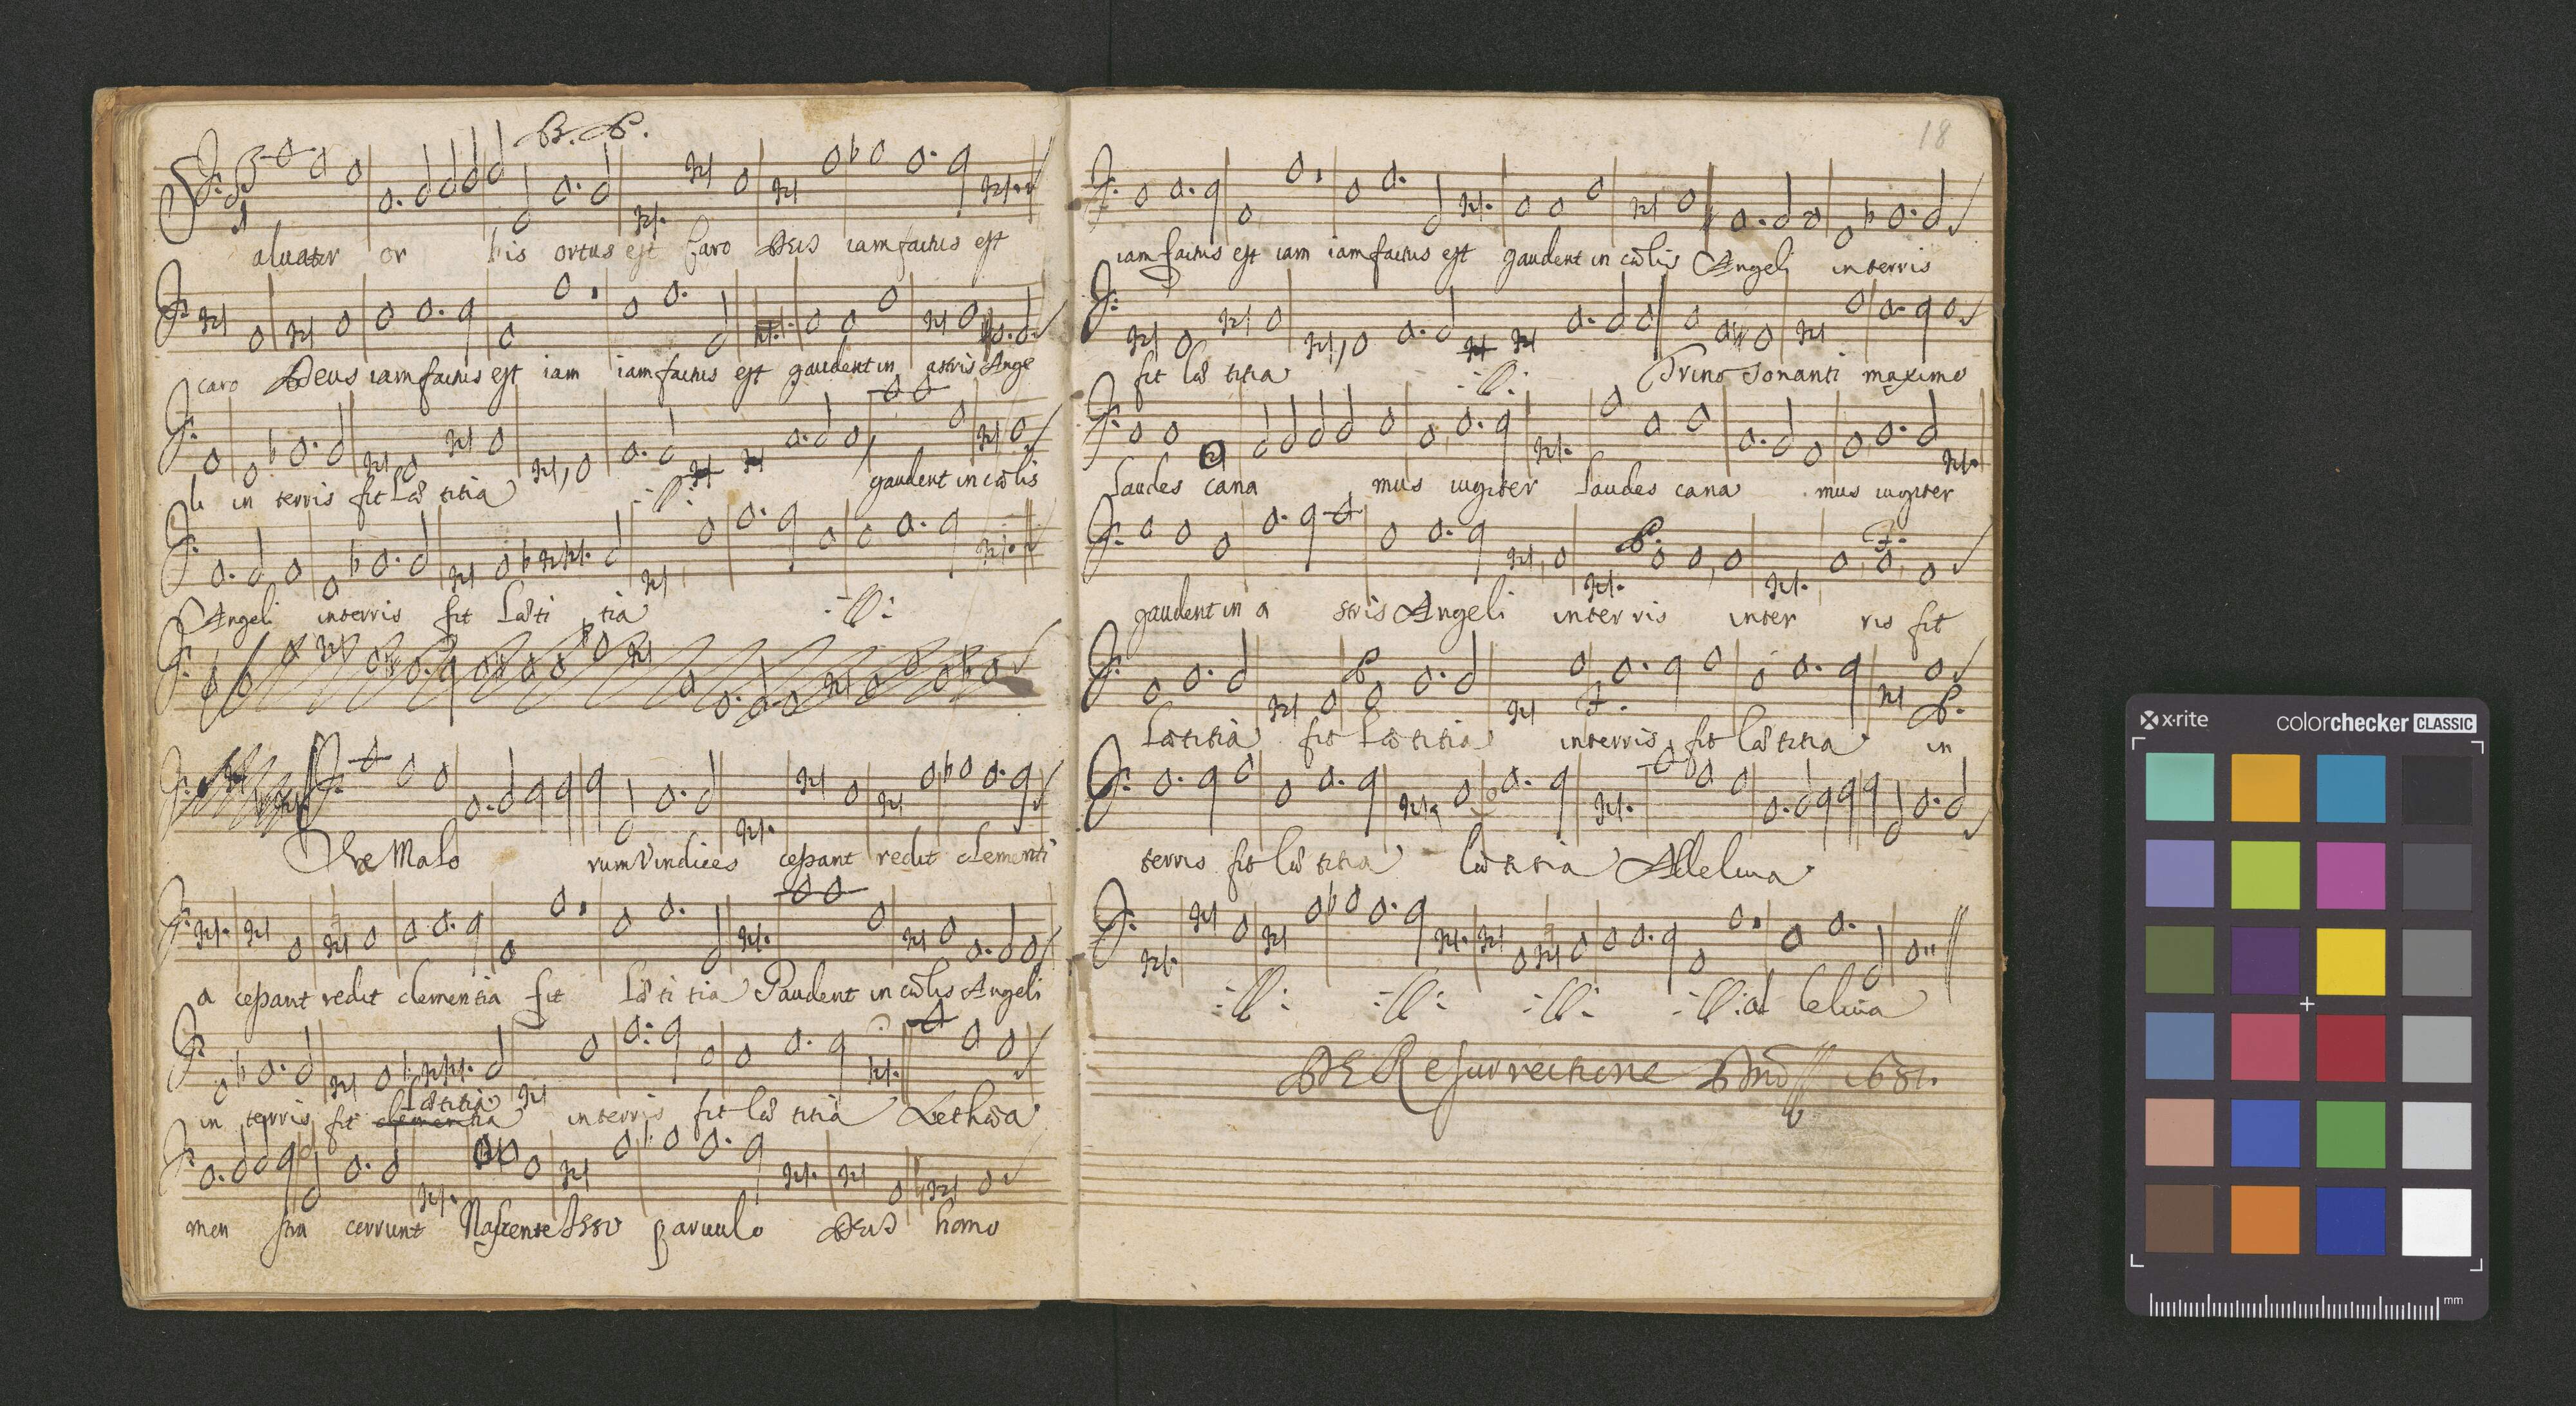 B. P.
Saluator or bis ortus est Caro Deus iam factus est
caro Deus iam factus est iam iam factus est gaudent in astris Ange
li in terris fit Lætitia :||: gaudent in cœlis
Angeli in terris fit Læti tia :||:
Iræ Malo rum Vindices cessant redit clementi
a cessant redit clementia fit Læ ti tia Gaudent in cœlis Angeli
in terris fit clementia Lætitia in terris fit læ titia Lethæa
men stra cerrunt Nascente Iesu paruulo Deus homo
18
iam factus est iam iam factus est gaudent in cœlis Angeli in terris
fit læ titia :||: Trino sonanti maximo
Laudes cana mus iugiter Laudes cana mus iugiter
P. F.
gaudent in a stris Angeli in terris in ter ris fit
P. F. P.
Lætitia fit Lætitia in terris fit læ titia in
terris fit læ titia læ titia Alleluia
:||: :||: :||: :||: al leluia
DE Resurrectione Dni 1681.
x·rite colorchecker CLASSIC
mm